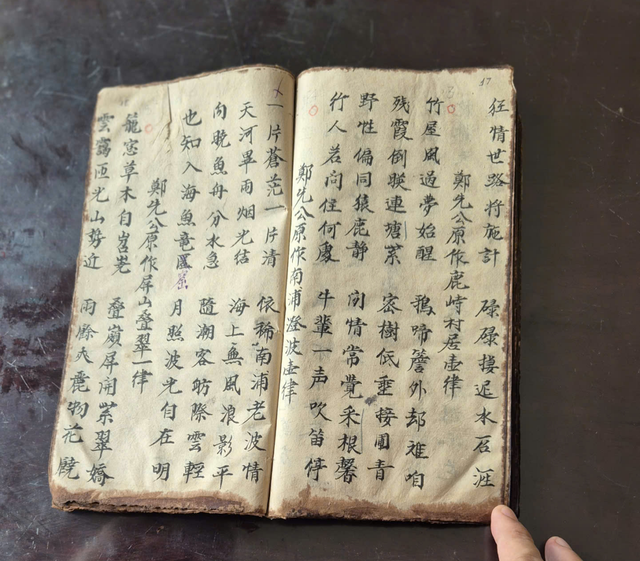 17
狂情世路將施計 碌碌棲遲水石涯
鄭先公原作鹿峙村居壹律
竹屋風過夢始醒 鴉啼簷外却难咱
残霞倒暎連塘紫 密樹低垂接圃青
野性偏同猿鹿静 閑情常覺采根馨
行人若问住何處 牛輩一声吹笛停
鄭先公原作南浦澄波壹律
一片蒼茫一片清 依稀南浦老波情
天河畢雨烟光结 海上無風浪影平
向晚魚舟分水急 隨潮客舫際雲輕
也知入海魚竜匿 月照波光自在明
鄭先公原作屏山叠翠一律
籠窓草木自岧嶤 叠嶺屏開紫翠嬌
雲靄匝光山势近 雨餘夾麗物花饒